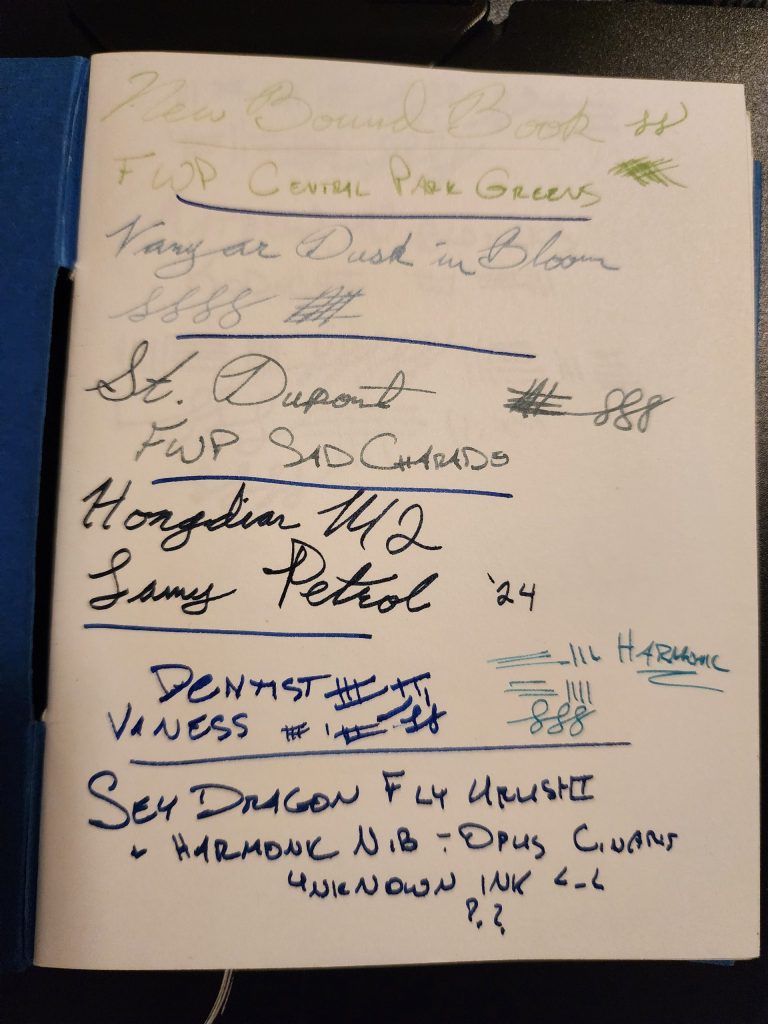 New Bound Book
FWP Central Park Greens
Dusk in Bloom
St. Dupont
FWP Sad Charado
Hongdian M2
Lamy Petrol '24
Harmonic
Dentist
Vaness
Sey Dragon Fly Urushi
Harmonk Nib - Opus Cinaris
Unknown ink
??